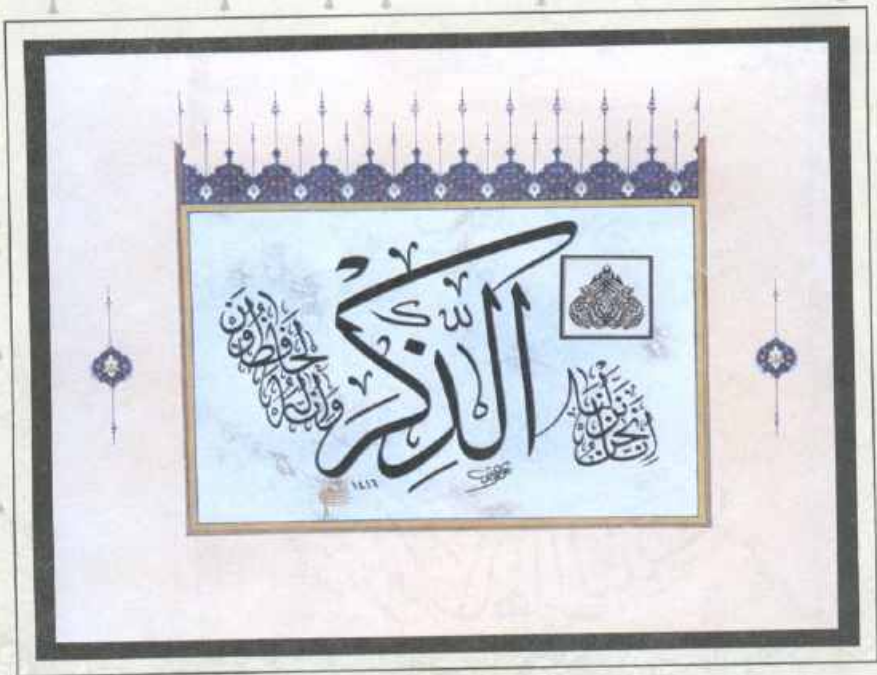 إِنَّا نَحْنُ نَزَّلْنَا
الذِّكْرَ
وَإِنَّا لَهُ لَحَافِظُونَ
١٤١٦